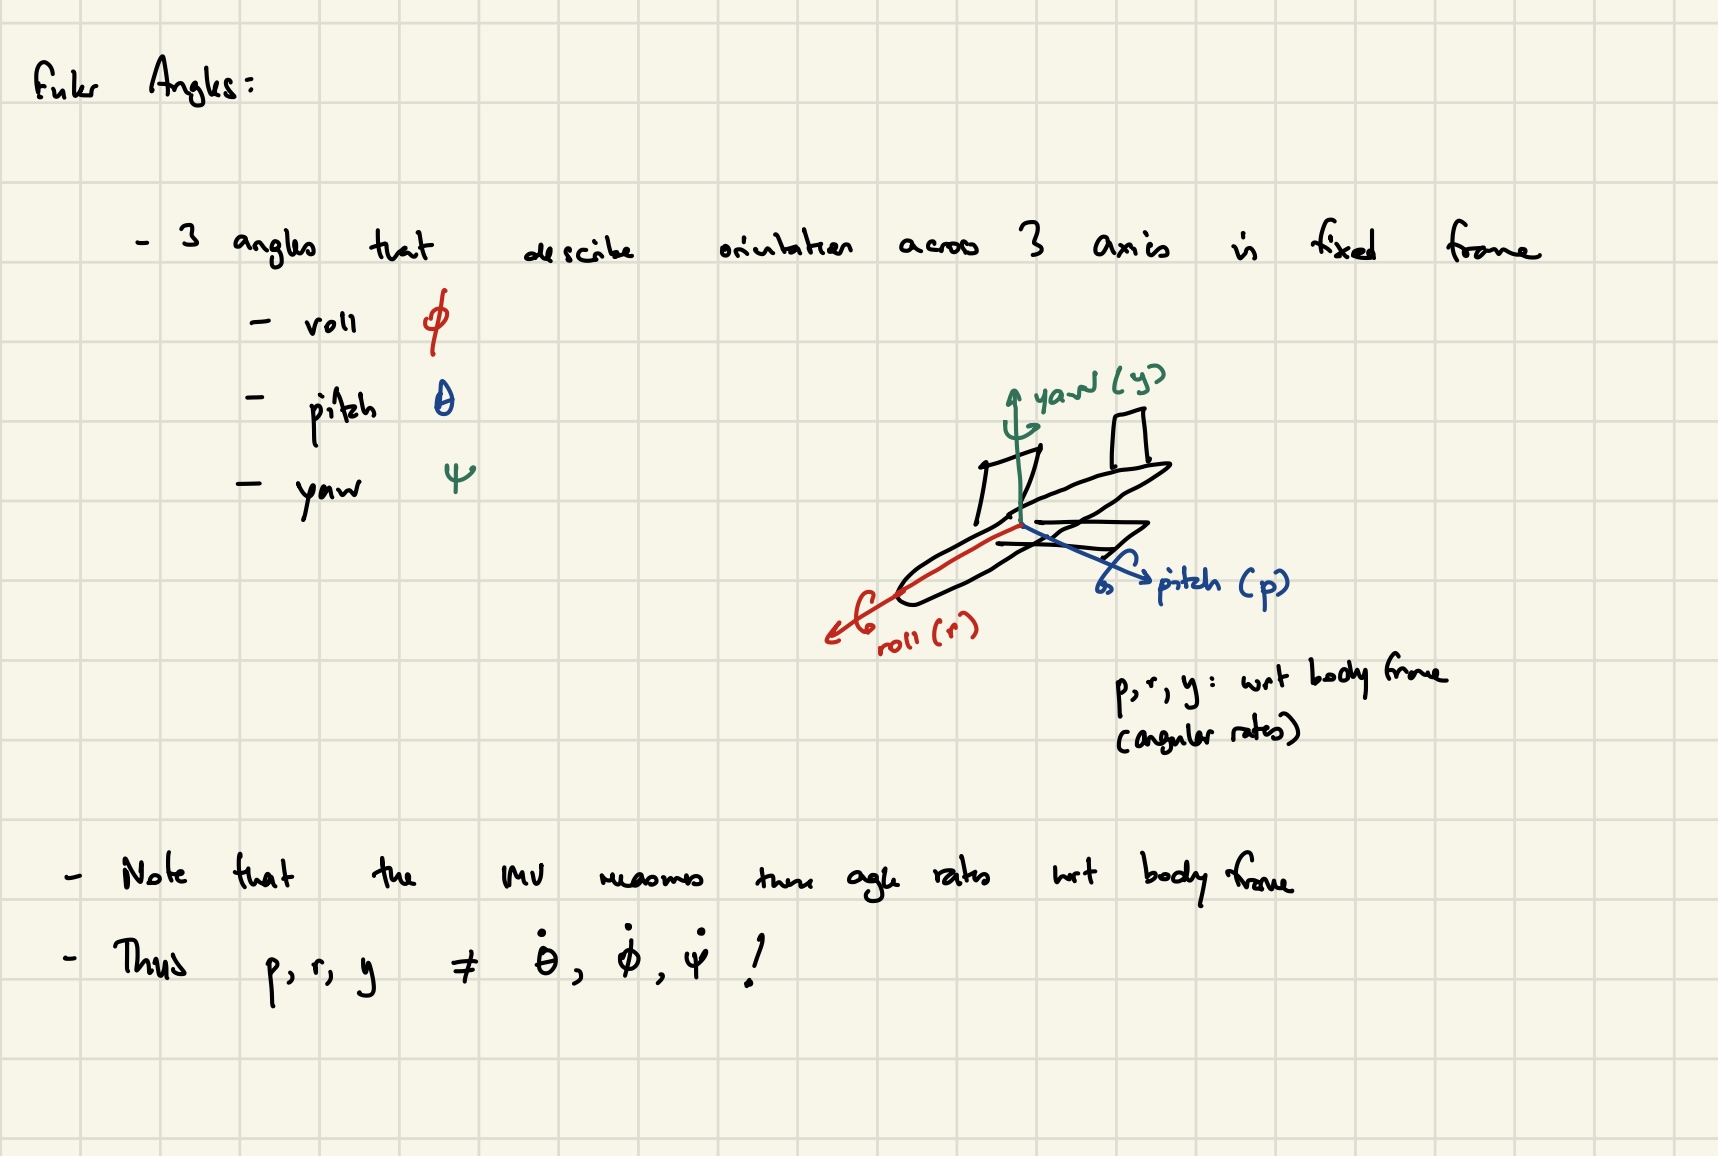 Euler Angles:
- 3 angles that describe orientation across 3 axis in fixed frame
- roll ϕ
- pitch θ
- yaw ψ
yaw (y)
pitch (p)
roll (r)
p, r, y: wrt body frame
(angular rates)
- Note that the IMU measures these angle rates wrt body frame
- Thus p, r, y ≠ θ̇, ϕ̇, ψ̇ !